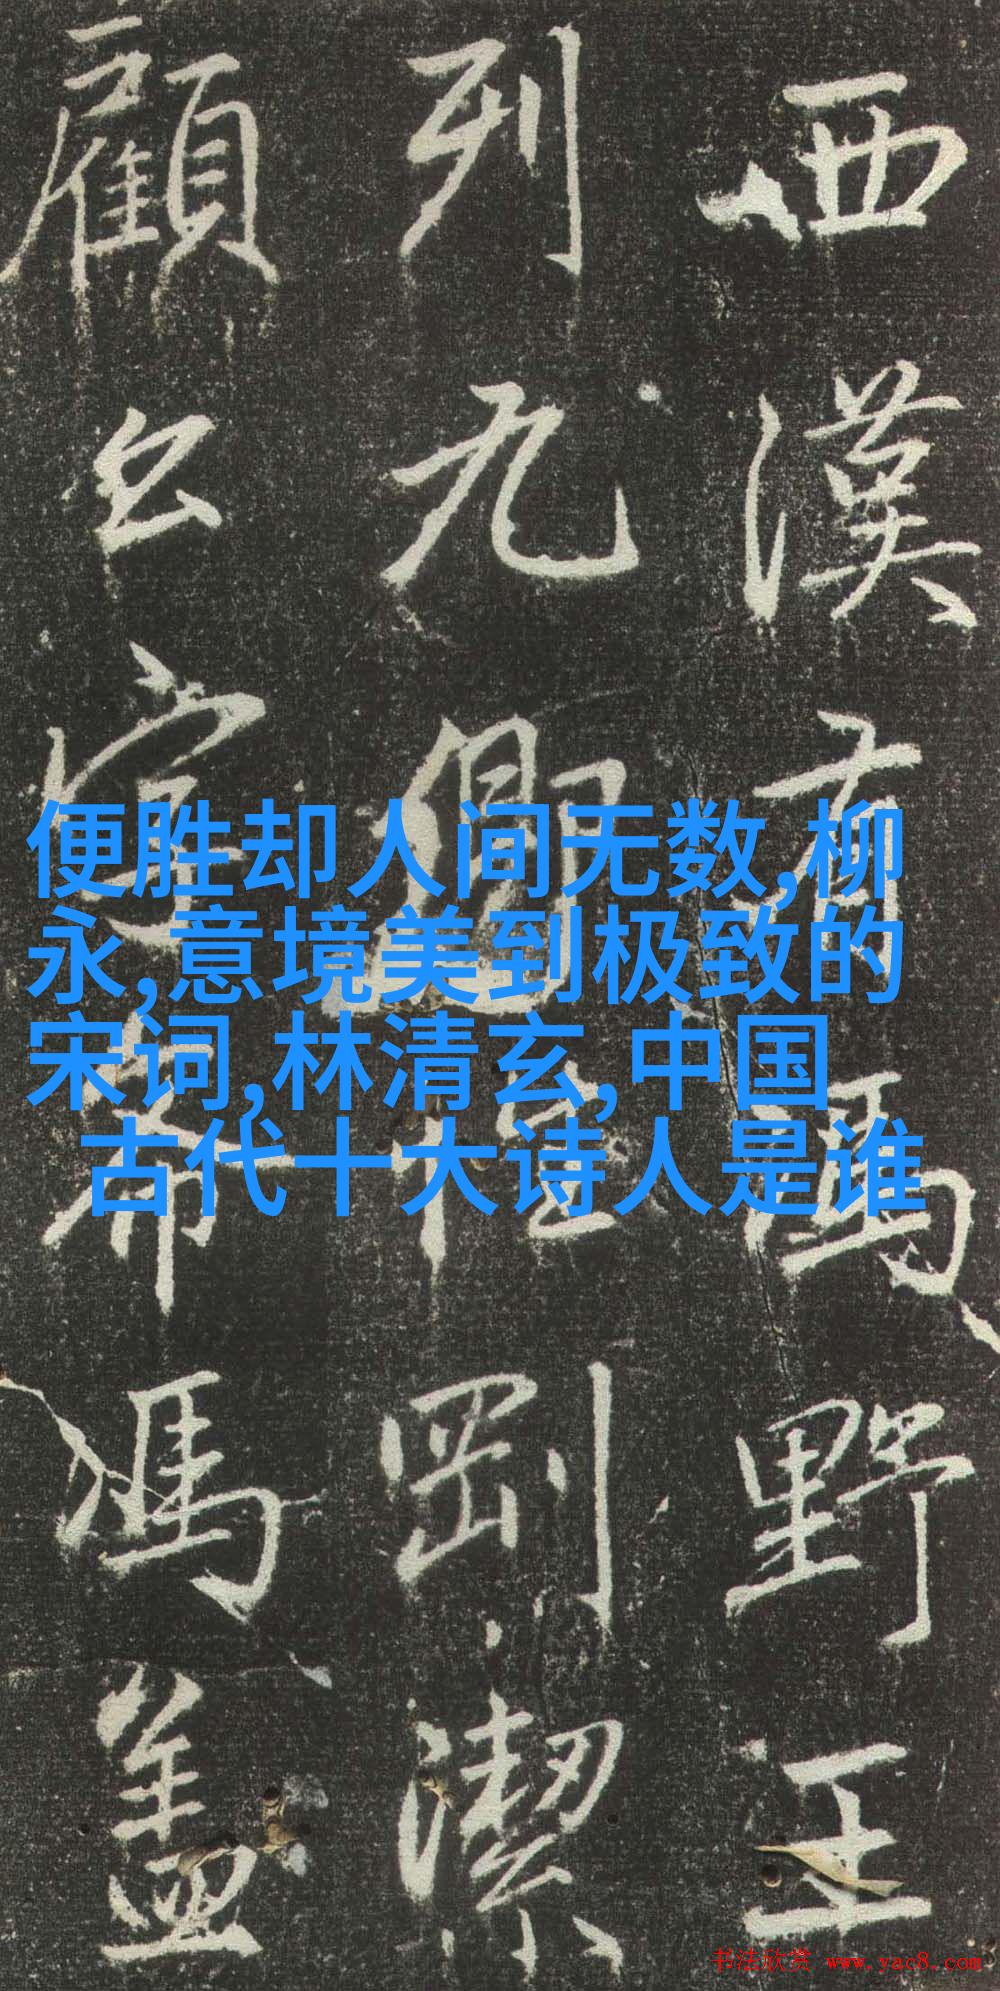 西漢有馮野王
列九卿性剛潔
顧公字希馮盖
便胜却人间无数,柳
永,意境美到极致的
宋词,林清玄,中国
古代十大诗人是谁
书法欣赏 www.yac8.com